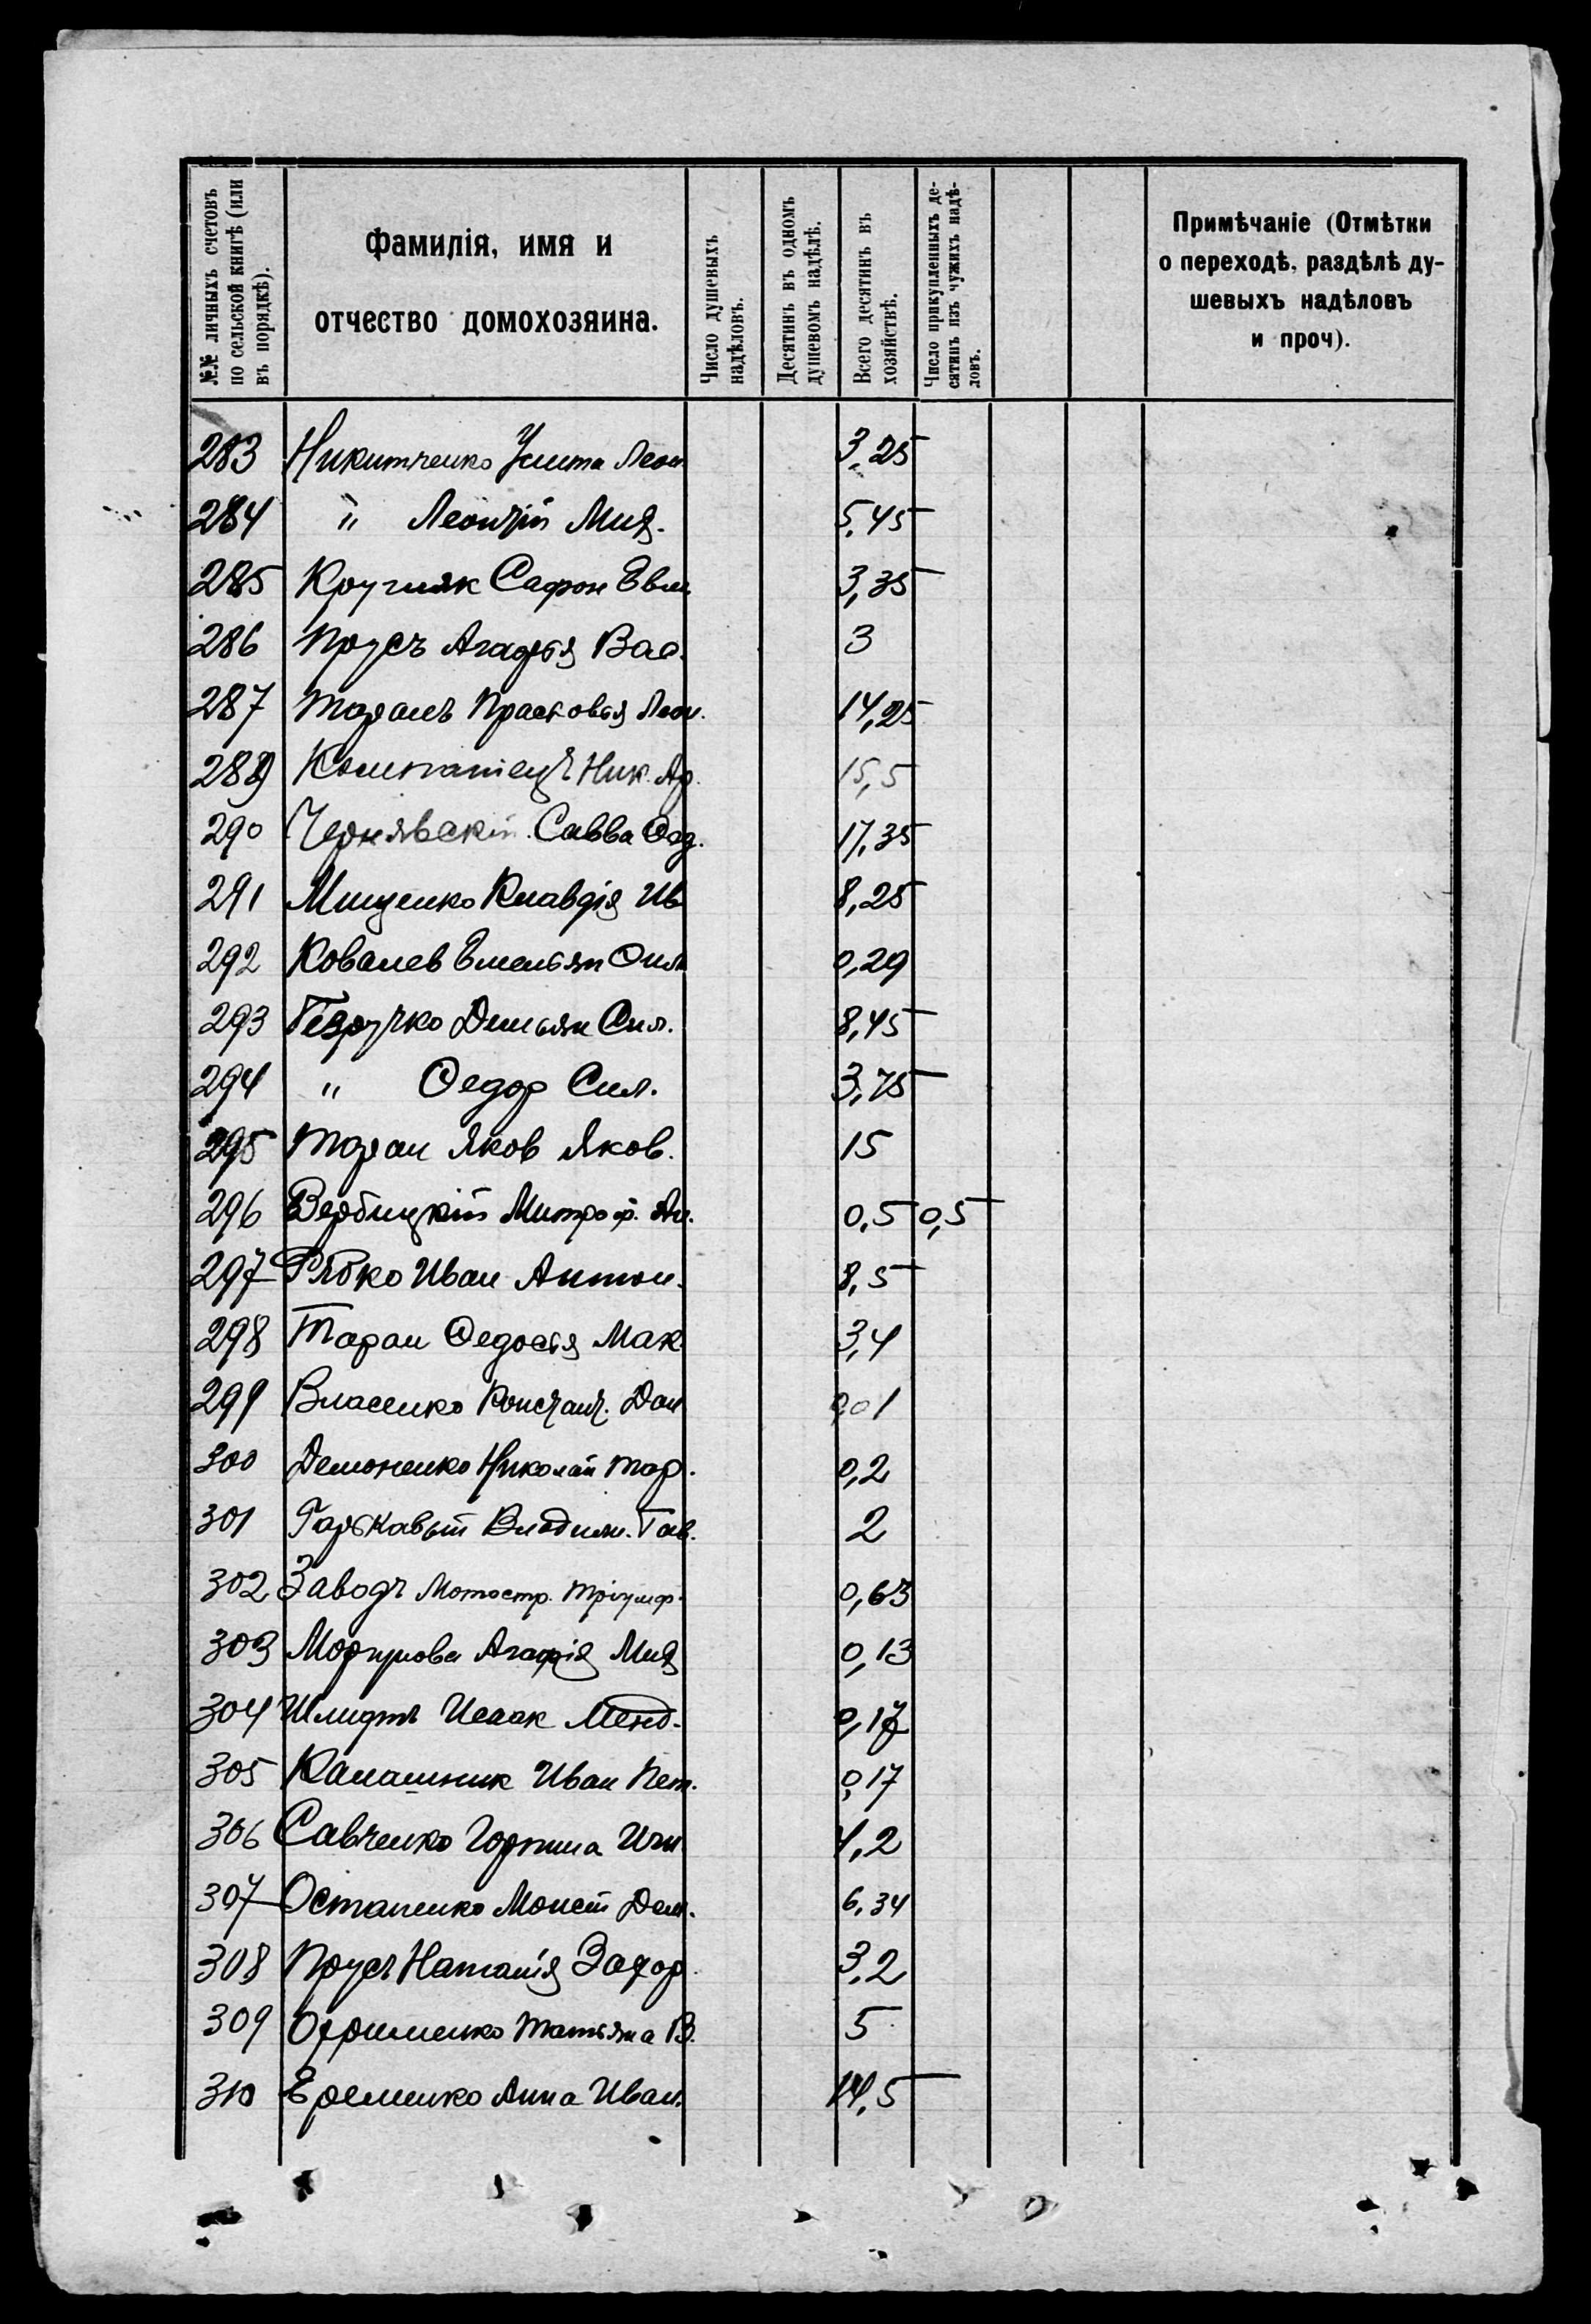 №№ личныхъ счетовъ по сельской книгѣ (или въ порядкѣ).
Фамилія, имя и отчество домохозяина.
Число душевыхъ надѣловъ.
Десятинъ въ одномъ душевомъ надѣлѣ.
Всего десятинъ въ хозяйствѣ.
Число прикупленныхъ десятинъ изъ чужихъ надѣловъ.
Примѣчаніе (Отмѣтки о переходѣ, раздѣлѣ душевыхъ надѣловъ и проч).
283 Никитченко Улита Леон 3,25
284 " Леонтій Мих. 5,45
285 Кругляк Сафон Евм. 3,35
286 Прусъ Агафья Вас. 3
287 Таранъ Прасковья Леон. 14,25
289 Компаніецъ Ник. Ар. 15,5
290 Чернявскій Савва Фад. 17,35
291 Мищенко Клавдія Ив 8,25
292 Ковалев Емельян 0,29
293 Безручко Демьян Сил. 8,45
294 " Федор Сил. 3,75
295 Таран Яков Яков. 15
296 Вербицкій Митроф. Ан. 0,5 0,5
297 Рябко Иван Антон. 8,5
298 Таран Федосья Мак. 3,4
299 Власенко Констант. Дан 0,01
300 Демоненко Николай Тар. 0,2
301 Гарькавый Владим. Гав. 2
302 Заводъ Мотостр. Тріумф. 0,63
303 Моргунова Агафія Мих 0,13
304 Шмидтъ Исаак Менд. 0,17
305 Калашник Иван Пет. 0,17
306 Савченко Горпина Игн 4,2
307 Остапенко Моисей Дем. 6,34
308 Прусъ Наталія Захар. 3,2
309 Охрименко Татьяна В. 5
310 Еременко Анна Иван. 14,5